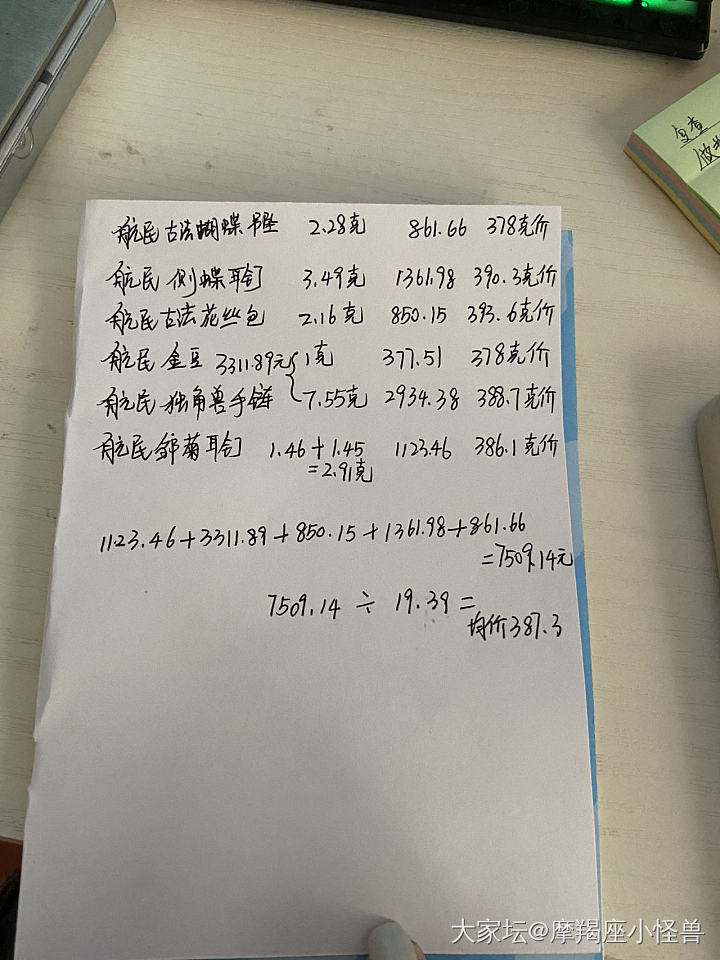 复查
航民古法蝴蝶吊坠 2.28克 861.66 378克价
航民侧蝶耳钉 3.49克 1361.98 390.3克价
航民古法花丝包 2.16克 850.15 393.6克价
航民金豆 3311.89元 1克 377.51 378克价
航民独角兽手链 7.55克 2934.38 388.7克价
航民邹菊耳钉 1.46+1.45 1123.46 386.1克价
=2.91克
1123.46+3311.89+850.15+1361.98+861.66
=7509.14元
7509.14 ÷ 19.39 =
均价387.3
大家坛@摩羯座小怪兽